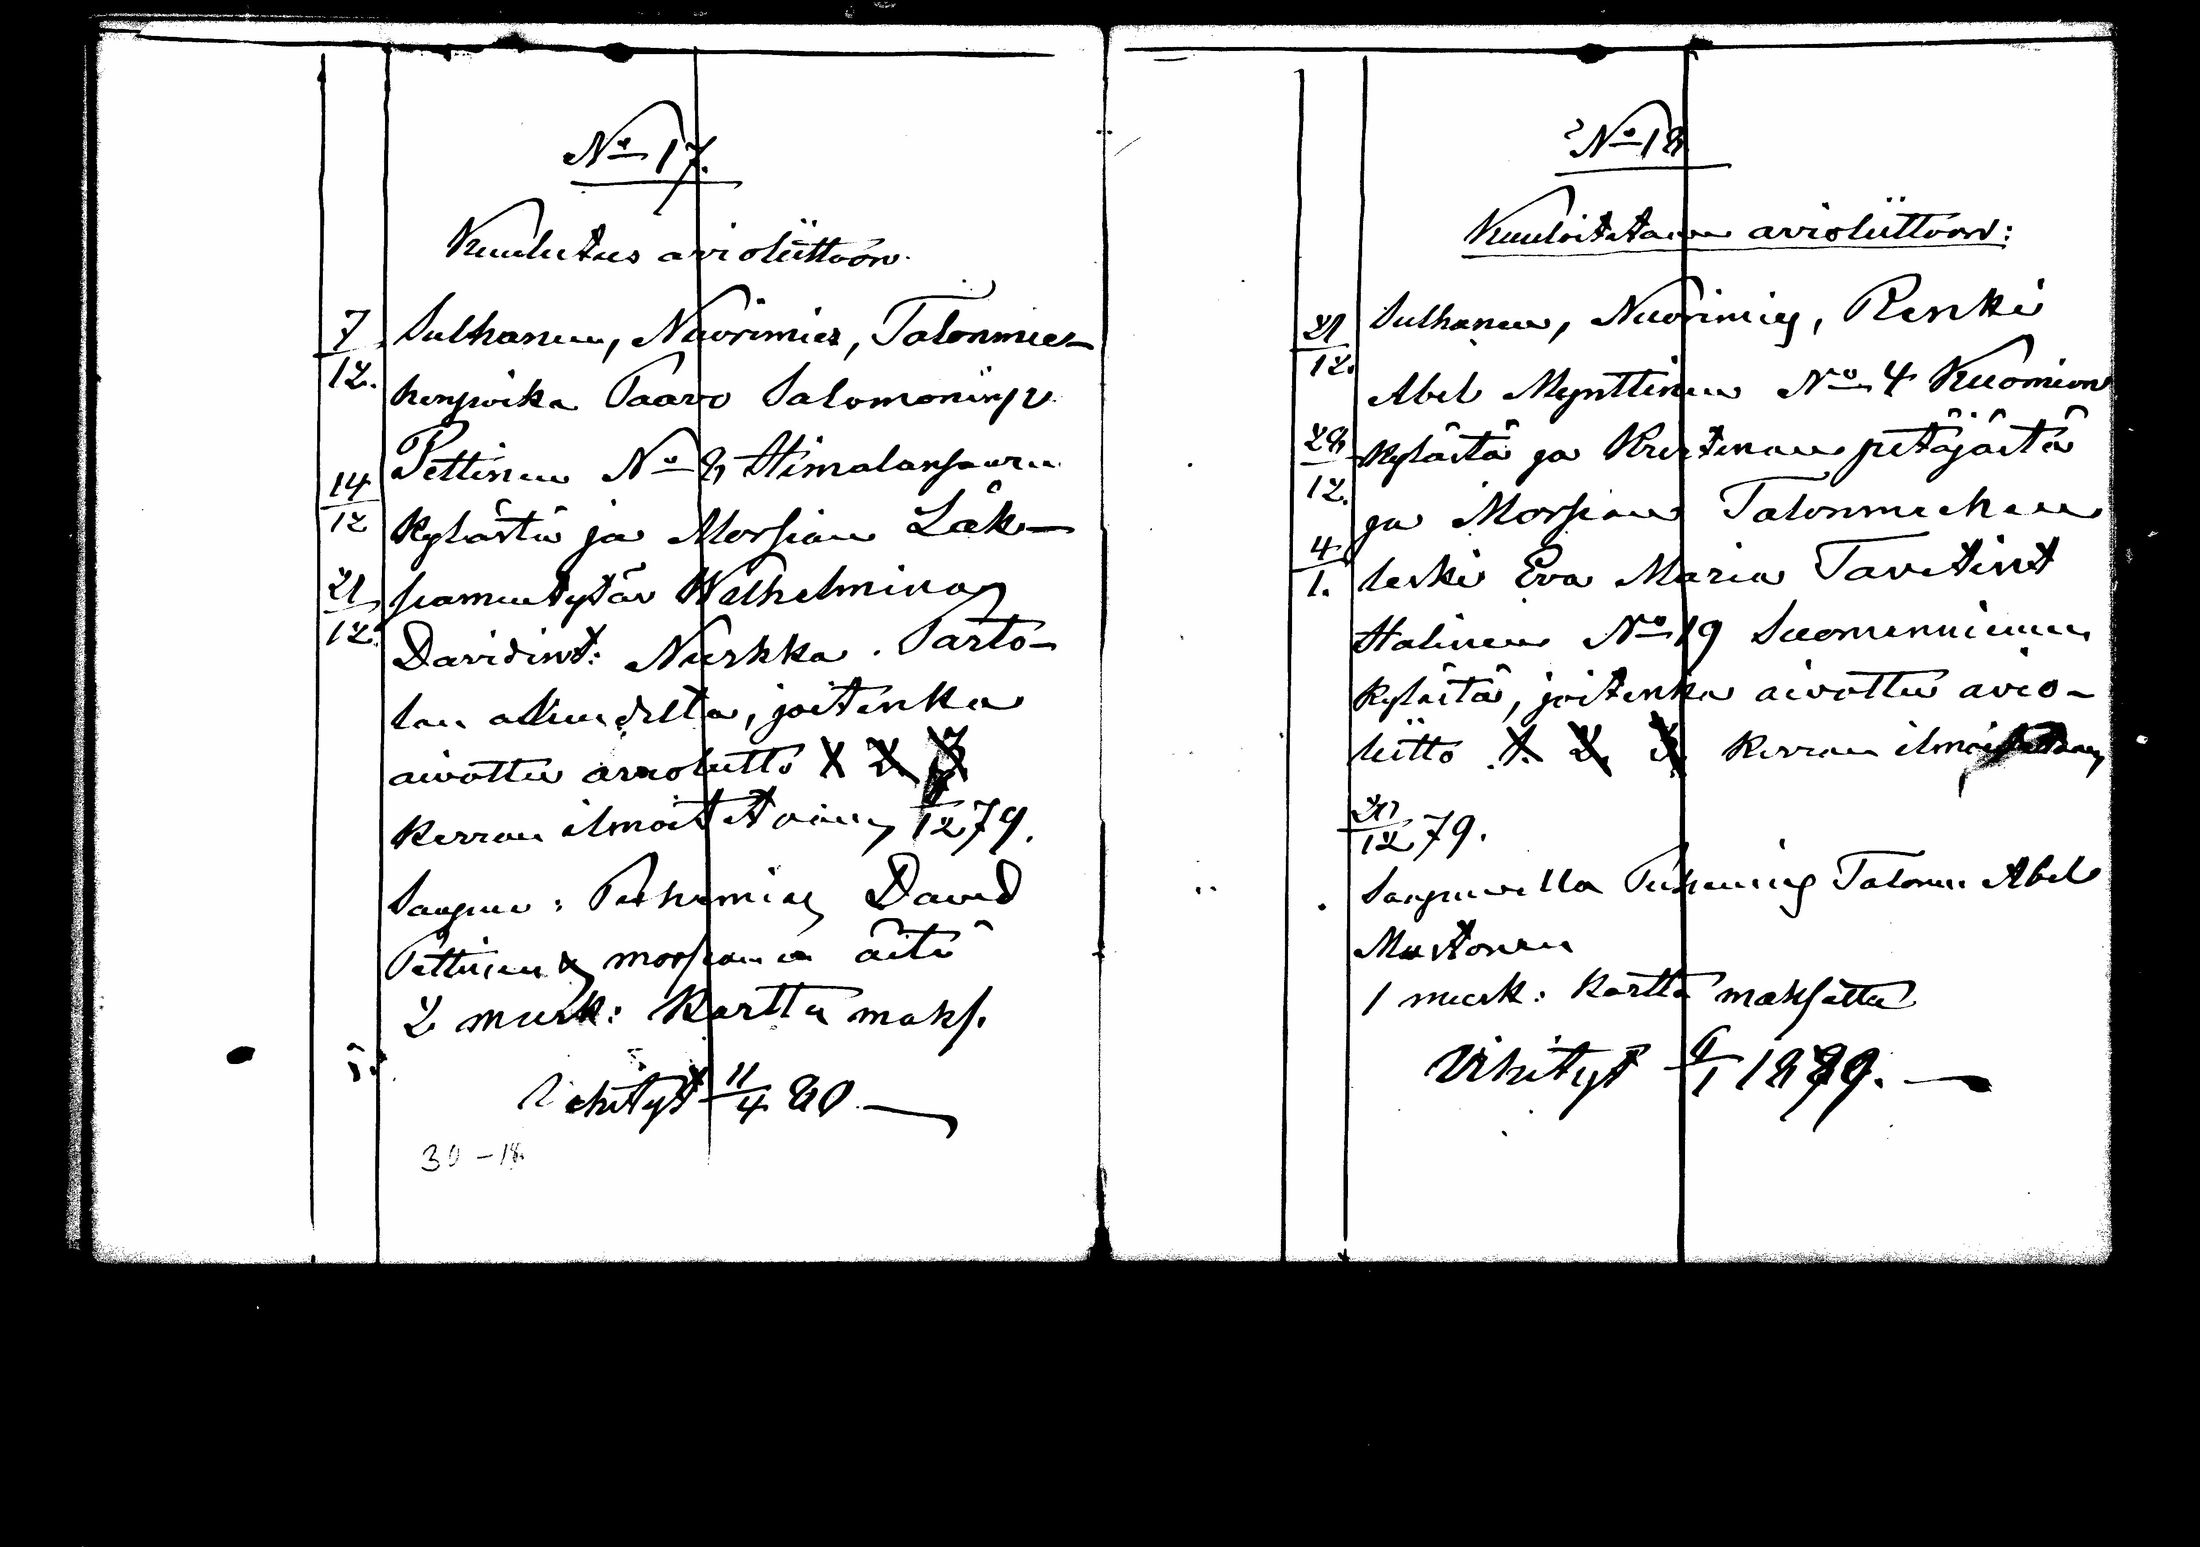 No 17.
Kuulutus avioliittoon.
7/12. Sulhanen, Nuorimies, Talonmies-
henpuoka Paavo Salomoninp.
Pettinen No 8 Himalansaaren
14/12 kylästä ja Morsian Läk-
21/12. siamentytär Wilhelmina
Davidint: Nurkka. Parto-
lan alaudelta, joitenka
aivottu avioliitto 1 2. 3
kerran ilmoitetaan 7/12 79.
Saapuv: Puhemies David
Pettinen & morsiamen äiti
2 mark: kartta maks.
Vihityt 11/4 80. —
30-18.
No 18
Kuuloitetaan avioliittoon:
21/12. Sulhanen, Nuorimies, Renki
Abel Mynttinen No 4 Kuomion
28/12. kylästä ja Kristinan pitäjästä
ja Morsian Talonmiehen
4/1. leski Eva Maria Tavetint
Halinen No 19 Suomenniemen
kylästä, joitenka aivottu avio-
liitto 1. 2. 3. kerran ilmoitetaan
20/12 79.
Saapuvilla Puhemies Talonm Abel
Mustonen
1 mark: kartta maksettu
Vihityt 6/1 1879. —